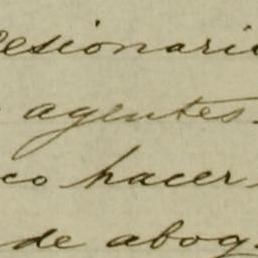 cesionari
agentes.
co hacer
de abog